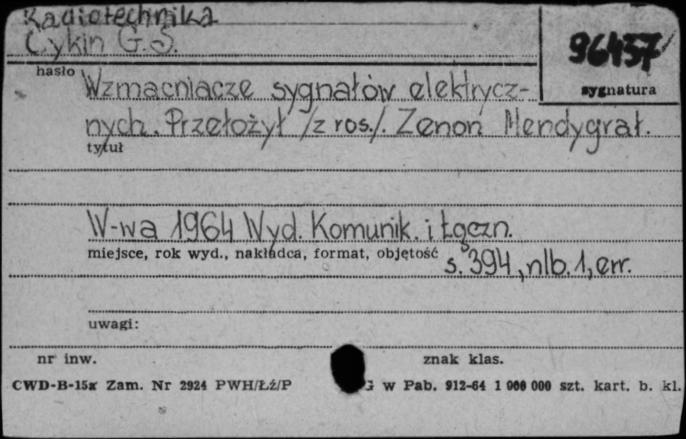 Radiotechnika
Cykin G.S.
96457
hasło
sygnatura
Wzmacniacze sygnałów elektrycz-
nych. Przełożył /z ros./. Zenon Mendygrał.
tytuł
W-wa 1964 Wyd. Komunik. i Łączn.
miejsce, rok wyd., nakładca, format, objętość
s. 394, nlb. 1, err.
uwagi:
nr inw.
znak klas.
CWD-B-15a Zam. Nr 2924 PWH/Łź/P G w Pab. 912-64 1 000 000 szt. kart. b. kl.